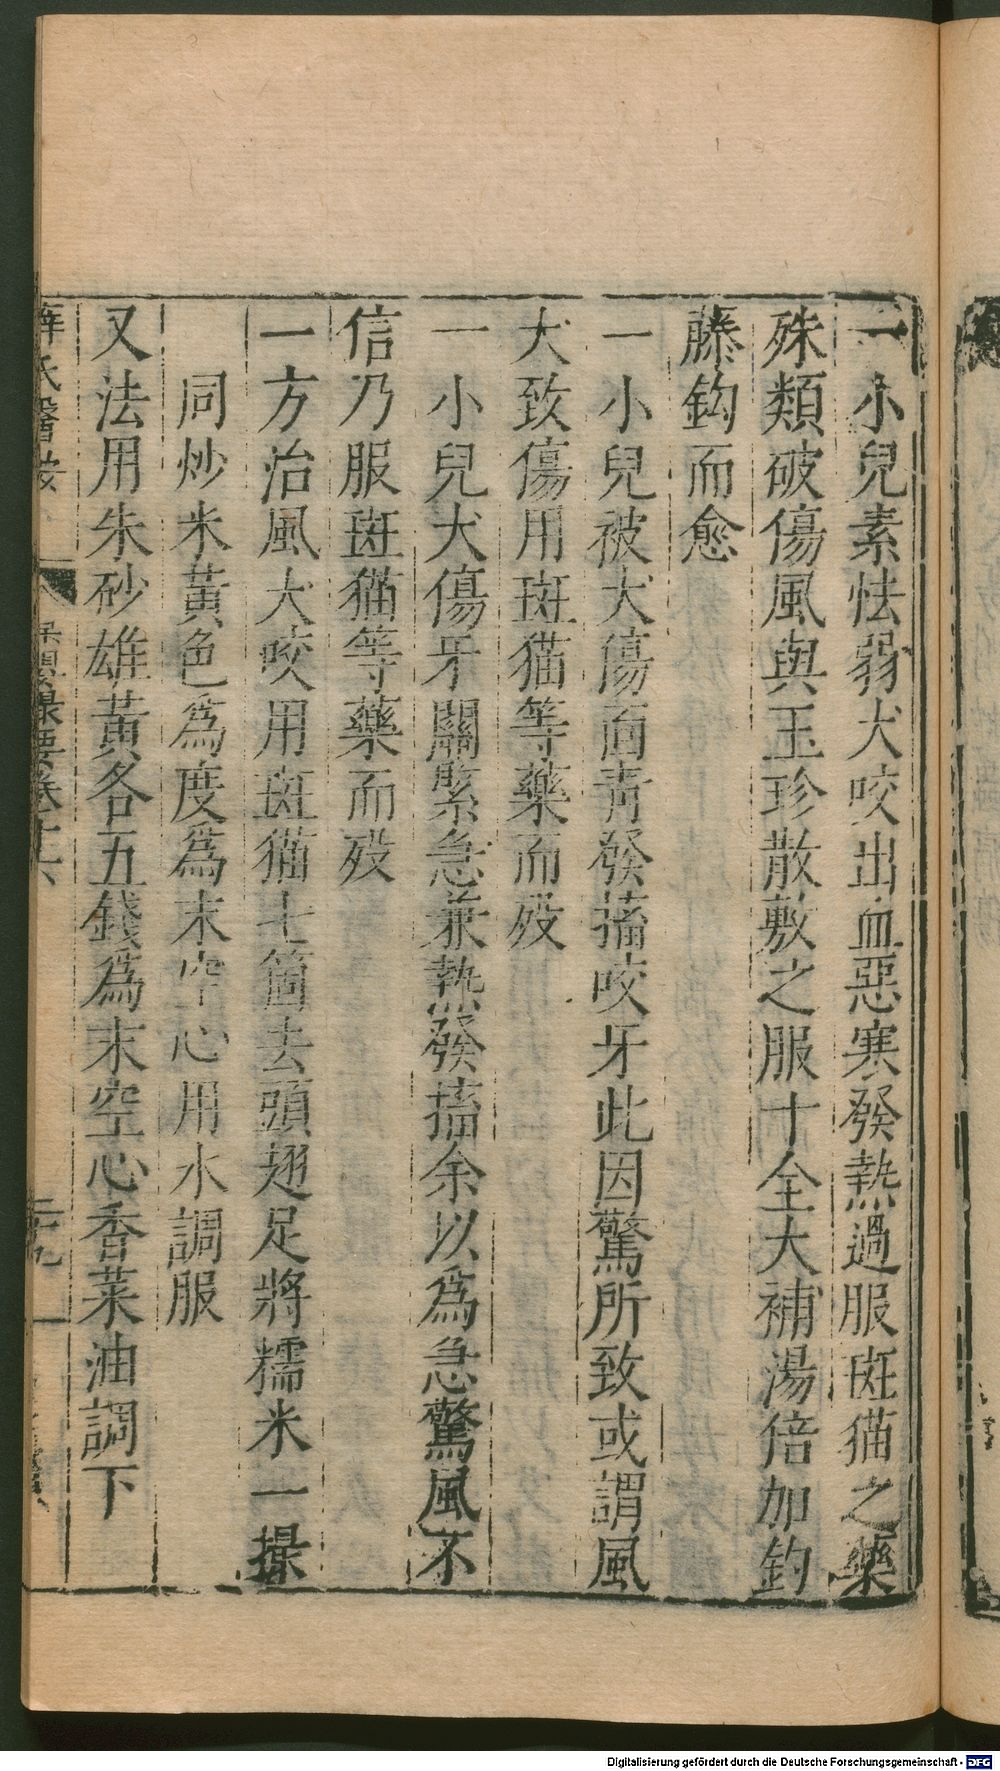 一小兒素怯弱犬咬出血惡寒發熱過服斑猫之藥
殊類破傷風與玉珍散敷之服十全大補湯倍加鈎
藤鈎而愈
一小兒被犬傷面青發搐咬牙此因驚所致或謂風
犬致傷用斑猫等藥而殁
一小兒犬傷牙關緊急兼熱發搐余以爲急驚風不
信乃服斑猫等藥而殁
一方治風犬咬用斑猫七箇去頭翅足將糯米一撮
同炒米黃色爲度爲末空心用水調服
又法用朱砂雄黃各五錢爲末空心香菜油調下
薛氏醫按
保嬰撮要卷十六
二九
Digitalisierung gefördert durch die Deutsche Forschungsgemeinschaft - DFG